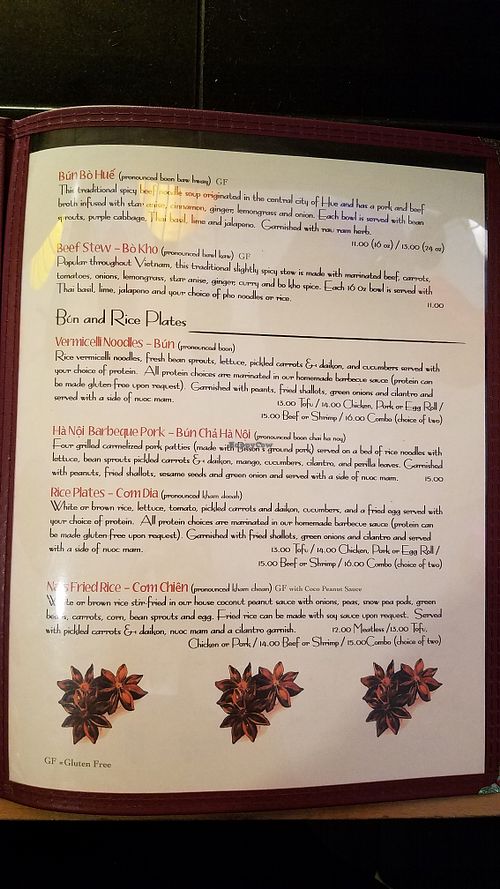 Bún Bò Huế (pronounced boon baw hway) GF
This traditional spicy beef noodle soup originated in the central city of Hue and has a pork and beef
broth infused with star anise, cinnamon, ginger, lemongrass and onion. Each bowl is served with bean
sprouts, purple cabbage, Thai basil, lime and jalapeno. Garnished with rau ram herb.
11.00 (16 oz) / 13.00 (24 oz)
Beef Stew – Bò Kho (pronounced bawl kaw) GF
Popular throughout Vietnam, this traditional slightly spicy stew is made with marinated beef, carrots,
tomatoes, onions, lemongrass, star anise, ginger, curry and bo kho spice. Each 16 oz bowl is served with
Thai basil, lime, jalapeno and your choice of pho noodles or rice.
11.00
Bún and Rice Plates
Vermicelli Noodles – Bún (pronounced boon)
Rice vermicelli noodles, fresh bean sprouts, lettuce, pickled carrots & daikon, and cucumbers served with
your choice of protein. All protein choices are marinated in our homemade barbecue sauce (protein can
be made gluten free upon request). Garnished with peants, fried shallots, green onions and cilantro and
served with a side of nuoc mam.
13.00 Tofu / 14.00 Chicken, Pork or Egg Roll /
15.00 Beef or Shrimp / 16.00 Combo (choice of two)
Hà Nôi Barbeque Pork – Bún Chả Hà Nôi (pronounced boon chai ha noy)
Four grilled carmelized pork patties (made with Bisson's ground pork) served on a bed of rice noodles with
lettuce, bean sprouts pickled carrots & daikon, mango, cucumbers, cilantro, and perilla leaves. Garnished
with peanuts, fried shallots, sesame seeds and green onion and served with a side of nuoc mam. 15.00
Rice Plates – Com Dia (pronounced kham deeah)
White or brown rice, lettuce, tomato, pickled carrots and daikon, cucumbers, and a fried egg served with
your choice of protein. All protein choices are marinated in our homemade barbecue sauce (protein can
be made gluten free upon request). Garnished with fried shallots, green onions and cilantro and served
with a side of nuoc mam. 13.00 Tofu / 14.00 Chicken, Pork or Egg Roll /
15.00 Beef or Shrimp / 16.00 Combo (choice of two)
Fried Rice – Com Chiên (pronounced kham chean) GF with Coco Peanut Sauce
White or brown rice stir-fried in our house coconut peanut sauce with onions, peas, snow pea pods, green
beans, carrots, corn, bean sprouts and egg. Fried rice can be made with soy sauce upon request. Served
with pickled carrots & daikon, nuoc mam and a cilantro garnish. 12.00 Meatless /13.00 Tofu,
Chicken or Pork / 14.00 Beef or Shrimp / 15.00Combo (choice of two)
GF = Gluten Free